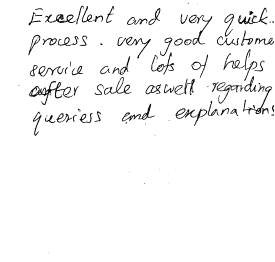 Excellent and very quick.
process. very good custome
service and lots of helps
after sale aswell regarding
queriess and explanations